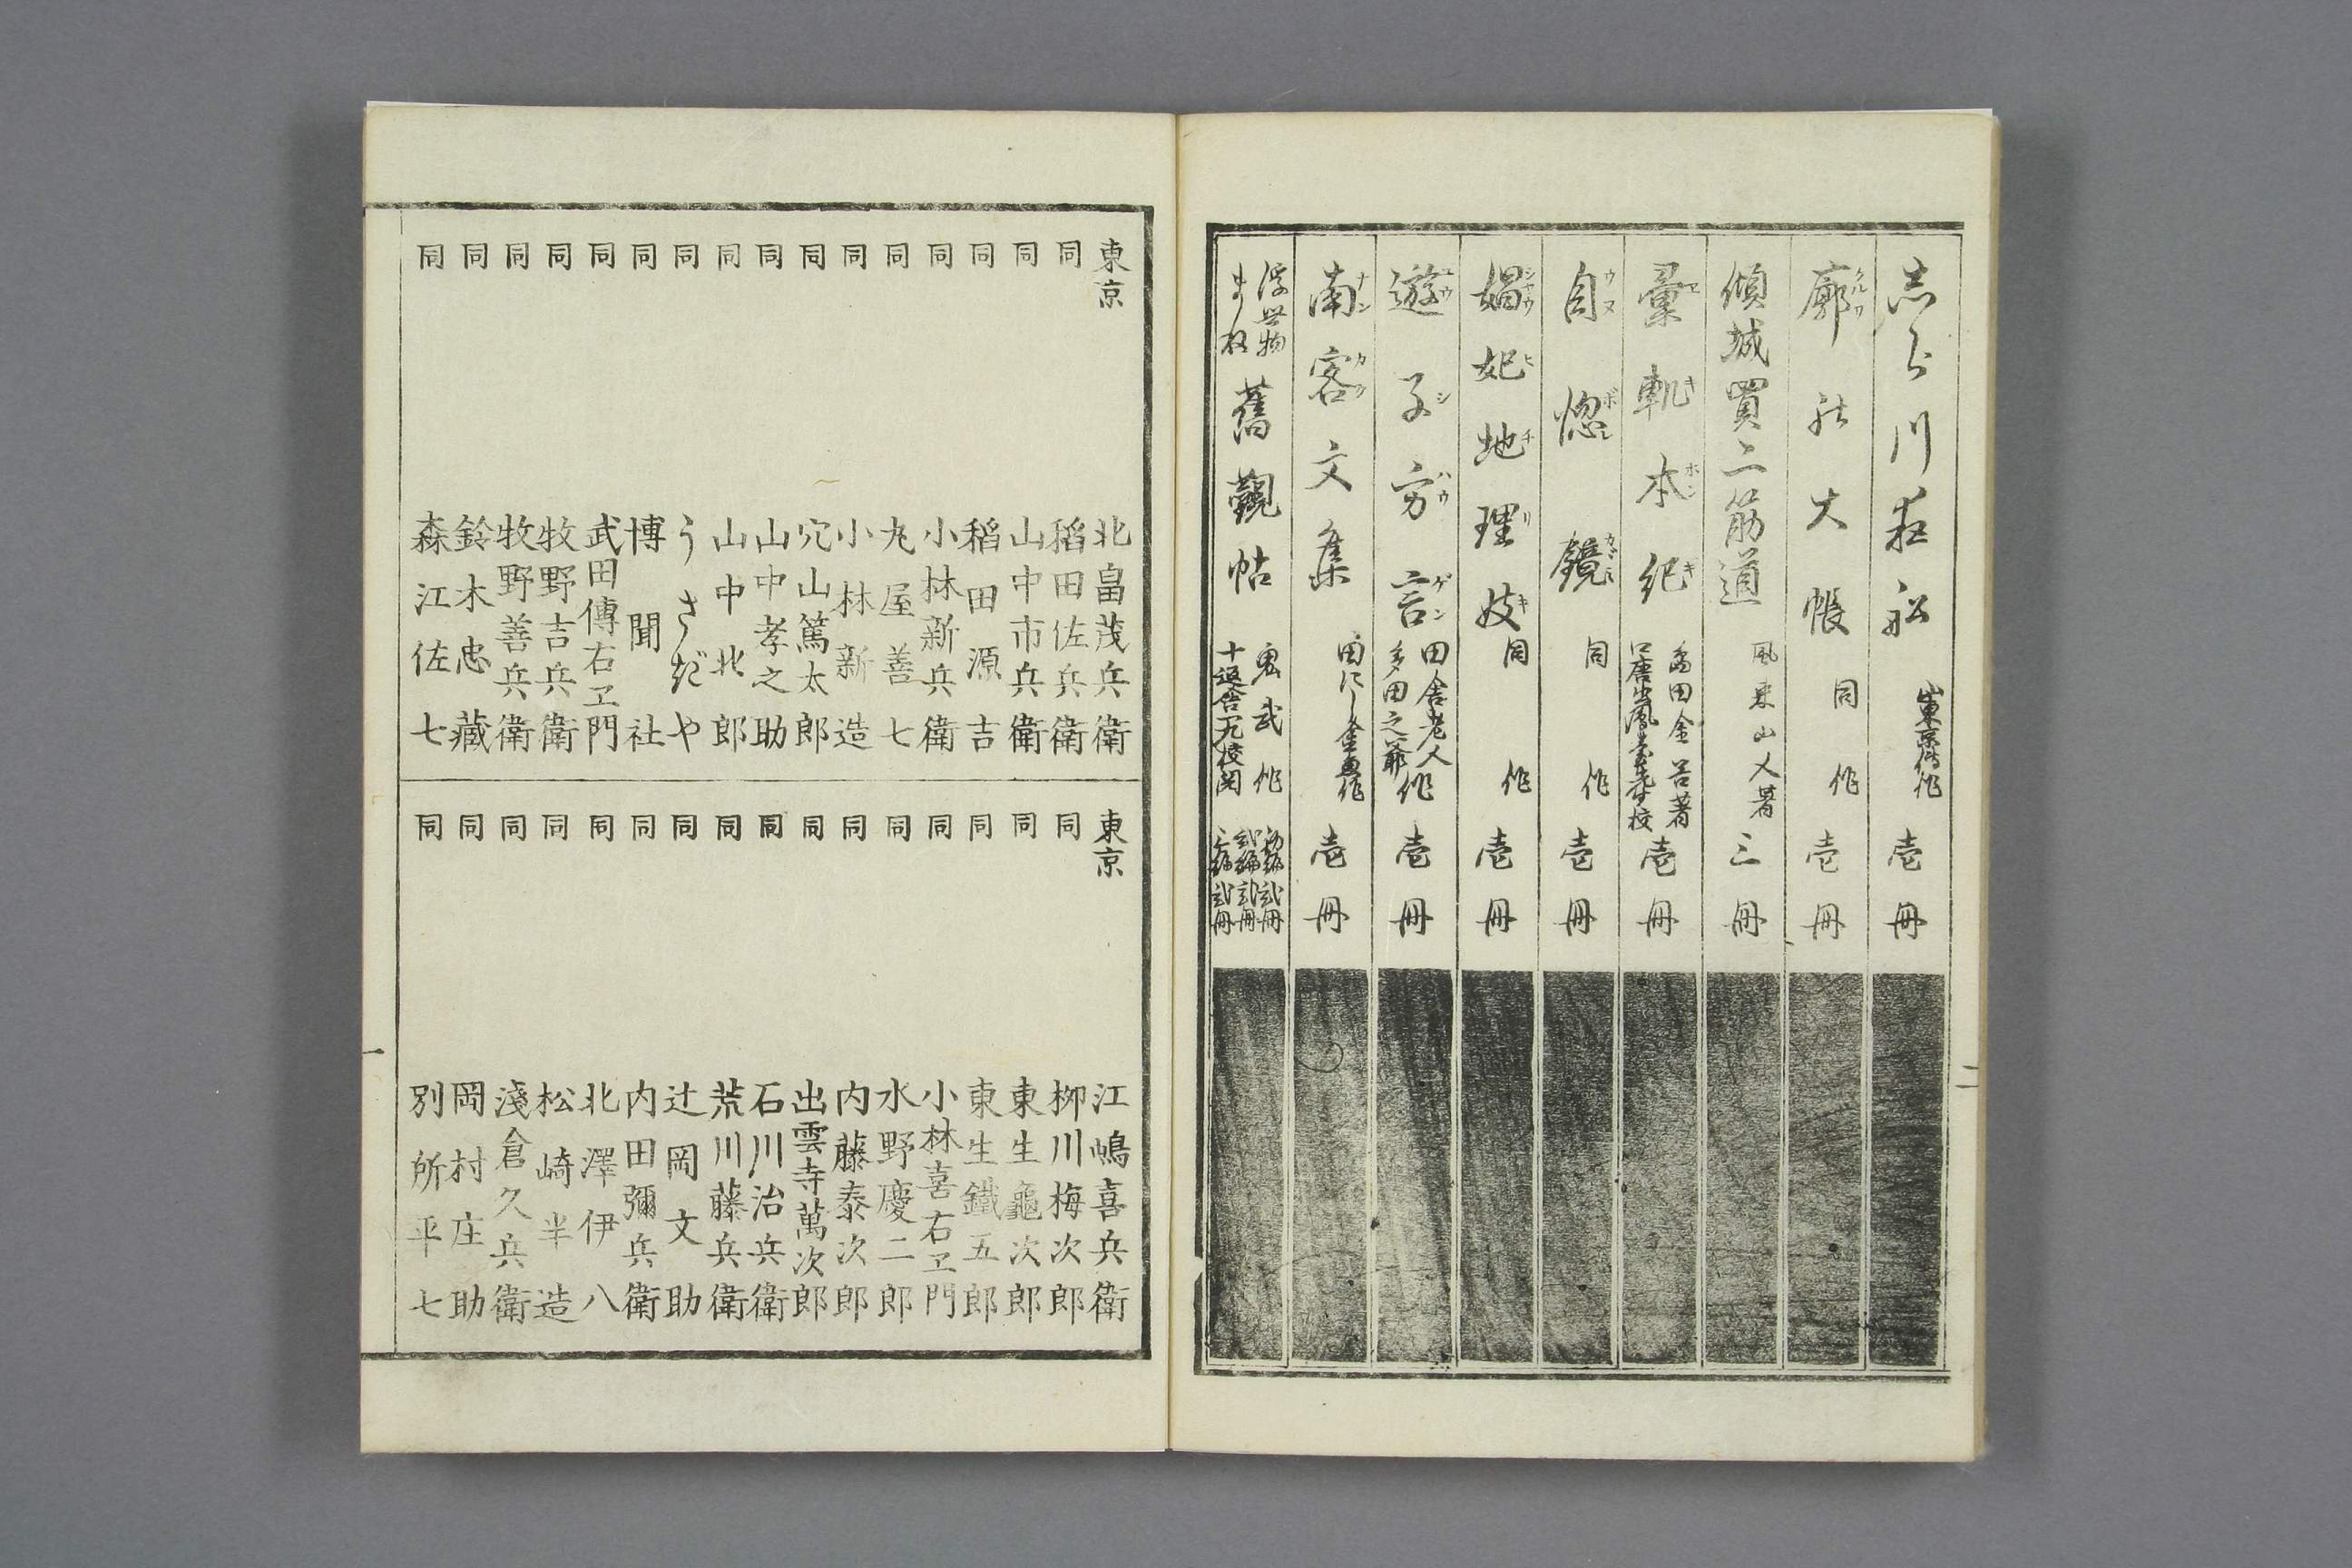 志らり川夜船 山東京傳作 壱冊
廓の大帳 同作 壱冊
傾城買二筋道 風来山人著 三冊
彙軌本紀 島田金谷著 口唐山鳳来先生校 壱冊
自惚鏡 同作 壱冊
娼妃地理妓 同作 壱冊
遊子方言 田舎老人多田之爺作 壱冊
南客文集 田にし金魚作 壱冊
浮世物まね 舊觀帖 鬼武作 十返舎一九校閲 初編弐冊 弐編弐冊 三編弐冊
二
東京 北畠茂兵衛
同 稻田佐兵衛
同 山中市兵衛
同 稻田源吉
同 小林新兵衛
同 丸屋善七
同 小林新造
同 穴山篤太郎
同 山中孝之助
同 山中北郎
同 うさぎや
同 博聞社
同 武田傳右ヱ門
同 牧野吉兵衛
同 牧野善兵衛
同 鈴木忠藏
同 森江佐七
東京 江嶋喜兵衛
同 柳川梅次郎
同 東生龜次郎
同 東生鐵五郎
同 小林喜右ヱ門
同 水野慶二郎
同 内藤泰次郎
同 出雲寺萬次郎
同 石川治兵衛
同 荒川藤兵衛
同 辻岡文助
同 内田彌兵衛
同 北澤伊八
同 松崎半造
同 淺倉久兵衛
同 岡村庄助
同 別所平七
一